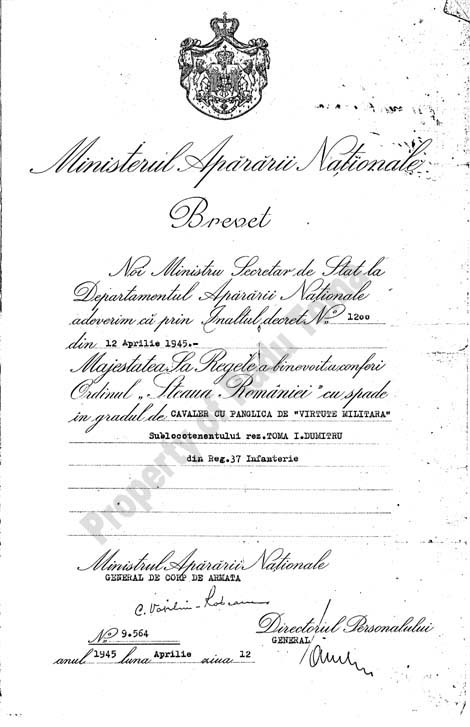 Ministerul Apărării Naționale
Brevet
Noi Ministru Secretar de Stat la
Departamentul Apărării Naționale
adeverim că prin Înaltul decret No. 1200
din 12 Aprilie 1945.-
Majestatea Sa Regele a binevoit a conferi
Ordinul „Steaua României" cu spade
în gradul de CAVALER CU PANGLICA DE "VIRTUTE MILITARA"
Sublocotenentului rez.TOMA I.DUMITRU
din Reg.37 Infanterie
Ministrul Apărării Naționale
GENERAL DE CORP DE ARMATA
No 9.564
Directorul Personalului
GENERAL
anul 1945 luna Aprilie ziua 12
Property of